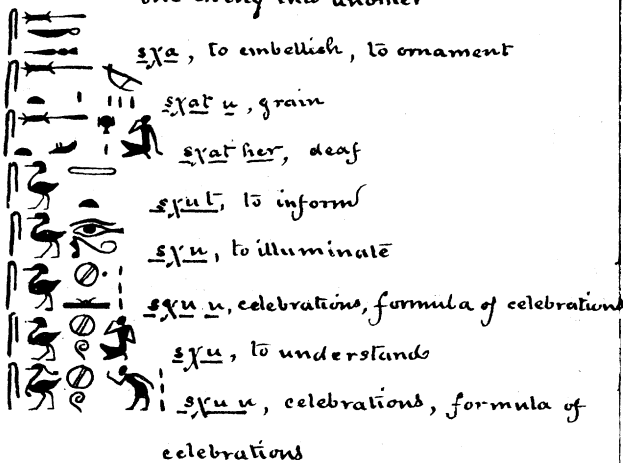 one thing into another
sχa, to embellish, to ornament
sχat u, grain
sχat her, deaf
sχut, to inform
sχu, to illuminate
sχu u, celebrations, formula of celebrations
sχu, to understand
sχu u, celebrations, formula of
celebrations